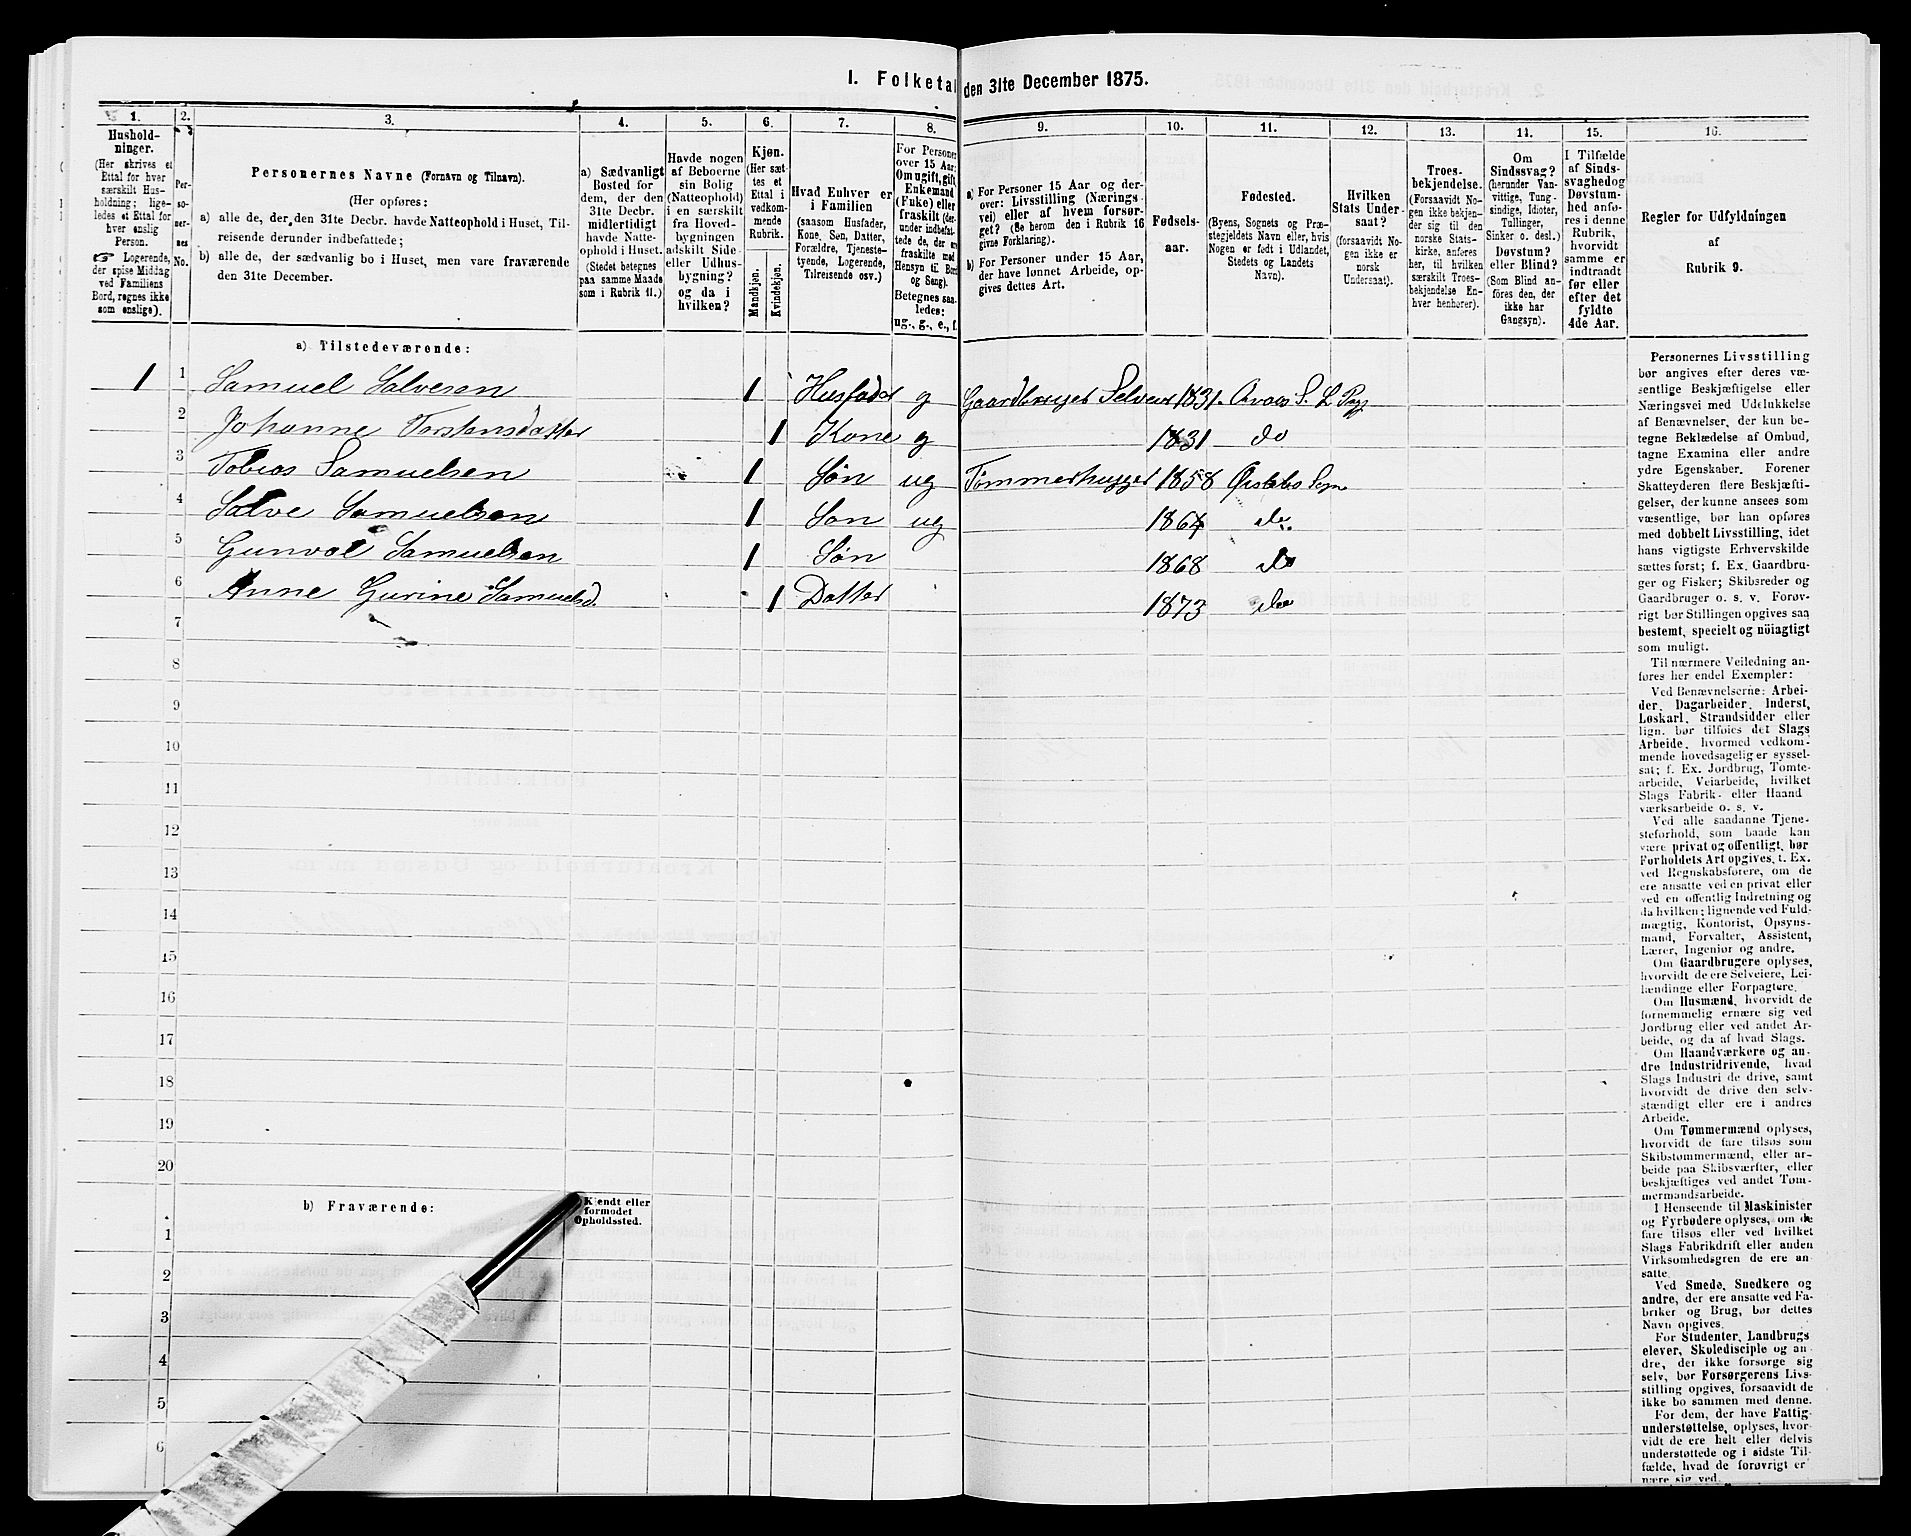 I. Folketal den 31te December 1875.
1. 2. 3. 4. 5. 6. 7. 8. 9. 10. 11. 12. 13. 14. 15. 16.
Hushold-
ninger.
(Her skrives et
Ettal for hver
særskilt Hus-
holdning; lige-
ledes et Ettal for
hver enslig
Person.
☞ Logerende,
der spise Middag
ved Familiens
Bord, regnes ikke
som enslige).
Per-
so-
ner-
nes
No.
Personernes Navne (Fornavn og Tilnavn).
(Her opføres:
a) alle de, der den 31te Decbr. havde Natteophold i Huset, Til-
reisende derunder indbefattede;
b) alle de, der sædvanlig bo i Huset, men vare fraværende
den 31te December.
a) Sædvanligt
Bosted for
dem, der den
31te Decbr.
midlertidigt
havde Natte-
ophold i Huset.
(Stedet betegnes
paa samme Maade
som i Rubrik 11.)
Havde nogen
af Beboerne
sin Bolig
(Natteophold)
i en særskilt
fra Hoved-
bygningen
adskilt Side-
eller Udhus-
bygning?
og da i
hvilken?
Kjøn.
(Her sæt-
tes et
Ettal i
vedkom-
mende
Rubrik.
Mandkjøn.
Kvindekjøn.
Hvad Enhver er
i Familien
(saasom Husfader,
Kone, Søn, Datter,
Forældre, Tjeneste-
tyende, Logerende,
Tilreisende osv.)
For Personer
over 15 Aar:
Om ugift, gift,
Enkemand
(Fuke) eller
fraskilt (der-
under indbefat-
tede de, der ere
fraskilte med
Hensyn til Bord
og Seng).
Betegnes saa-
ledes:
ug., g., e., f.
a) For Personer 15 Aar og der-
over: Livsstilling (Nærings-
vei) eller af hvem forsør-
get? (Se herom den i Rubrik 16
givne Forklaring).
b) For Personer under 15 Aar,
der have lønnet Arbeide, op-
gives dettes Art.
Fødsels-
aar.
Fødested.
(Byens, Sognets og Præ-
stegjeldets Navn eller, hvis
Nogen er født i Udlandet,
Stedets og Landets
Navn).
Hvilken
Stats Under-
saat?
(forsaavidt No-
gen ikke er
norsk
Undersaat).
Troes-
bekjendelse.
(Forsaavidt No-
gen ikke bekjen-
der sig til den
norske Stats-
kirke, anføres
her, til hvilken
særskilt Troes-
bekjendelse En-
hver henhører).
Om
Sindssvag?
(herunder Van-
vittige, Tung-
sindige, Idioter,
Tullinger,
Sinker o. desl.)
Døvstum?
eller Blind?
(Som Blind an-
føres den, der
ikke har
Gangsyn).
I Tilfælde
af Sinds-
svaghed og
Døvstum-
hed anfø-
res i denne
Rubrik,
hvorvidt
samme er
indtraadt
før eller
efter det
fyldte
4de Aar.
Regler for Udfyldningen
af
Rubrik 9.
a) Tilstedeværende:
1 1 Samuel Salvesen 1 Husfader g Gaardbruger Selveier 1831
2 Johanne Torstensdatter 1 Kone g 1831 do
3 Tobias Samuelsen 1 Søn ug Tømmerhugger 1858
4 Salve Samuelsen 1 Søn ug 1864 do.
5 Gunval Samuelsen 1 Søn 1868 do
6 Anne Gurine Samuelsd. 1 Datter 1873 do
7
8
9
10
11
12
13
14
15
16
17
18
19
20
b) Fraværende:
Kjendt eller
formodet
Opholdssted.
1
2
3
4
5
6
Personernes Livsstilling
bør angives efter deres væ-
sentlige Beskjæftigelse eller
Næringsvei med Udelukkelse
af Benævnelser, der kun be-
tegne Beklædelse af Ombud,
tagne Examina eller andre
ydre Egenskaber. Forener
Skatteyderen flere Beskjæfti-
gelser, der kunne ansees som
væsentlige, bør han opføres
med dobbelt Livsstilling, idet
hans vigtigste Erhvervskilde
sættes først; f. Ex. Gaardbru-
ger og Fisker; Skibsreder og
Gaardbruger o. s. v. Forøv-
rigt bør Stillingen opgives saa
bestemt, specielt og nöiagtigt
som muligt.
Til nærmere Veiledning an-
føres her endel Exempler:
Ved Benævnelserne: Arbei-
der, Dagarbeider, Inderst,
Løskarl, Strandsidder eller
lign. bør tilføies det Slags
Arbeide, hvormed vedkom-
mende hovedsagelig er syssel-
sat; f. Ex. Jordbrug, Tomte-
arbeide, Veiarbeide, hvilket
Slags Fabrik- eller Haand
værksarbeide o. s. v.
Ved alle saadanne Tjene-
steforhold, som baade kan
være privat og offentligt, bør
Forholdets Art opgives, t. Ex.
ved Regnskabsførere, om de
ere ansatte ved en privat eller
ved en offentlig Indretning og
da hvilken; lignende ved Fuld-
mægtig, Kontorist, Opsyns-
mand, Forvalter, Assistent,
Lærer, Ingeniør og andre.
Om Gaardbrugere oplyses,
hvorvidt de ere Selveiere, Lei-
lændinge eller Forpagtere.
Om Husmænd, hvorvidt de
fornemmelig ernære sig ved
Jordbrug eller ved andet Ar-
beide, og da af hvad Slags.
Om Haandværkere og an-
dre Industridrivende, hvad
Slags Industri de drive, samt
hvorvidt de drive den selv-
stændigt eller ere i andres
Arbeide.
Om Tømmermænd oplyses,
hvorvidt de fare tilsøs som
Skibstømmermænd, eller ar-
beide paa Skibsværfter, eller
beskjæftiges ved andet Tøm-
mermandsarbeide.
I Henseende til Maskinister
og Fyrbødere oplyses, om de
fare tilsøs eller ved hvilket
Slags Fabrikdrift eller anden
Virksomhedsgren de ere an-
satte.
Ved Smede, Snedkere og
andre, der ere ansatte ved Fa-
briker og Brug, bør dettes
Navn opgives.
For Studenter, Landbrugs
elever, Skoledisciple og an-
dre, der ikke forsørge sig
selv, bør Forsørgerens Livs-
stilling opgives, forsaavidt de
ikke bo sammen med denne.
For dem, der have Fattig-
understøttelse, oplyses, hvor-
vidt de ere helt eller delvis
understøttede og i sidste Til-
fælde, hvad de forøvrigt er
nære sig ved.